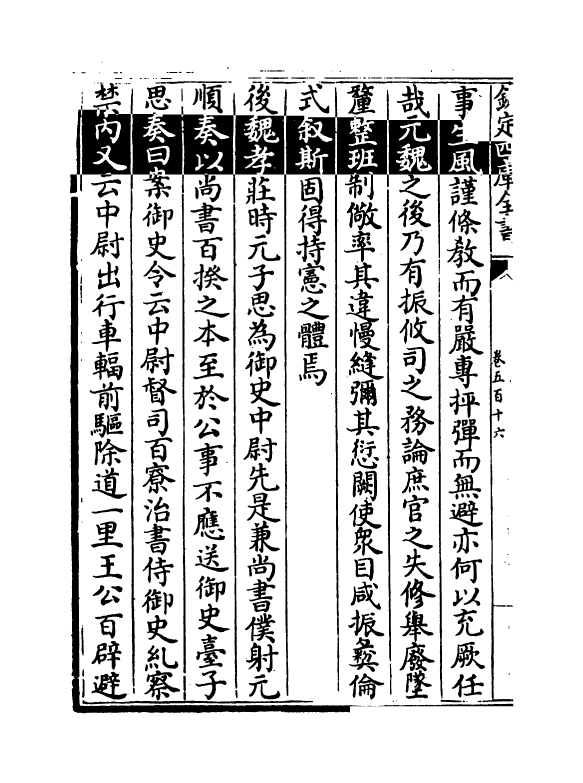 欽定四庫全書
卷五百十六
事生風謹條教而有嚴專抨彈而無避亦何以充厥任
哉元魏之後乃有振攸司之務論庶官之失修舉廢墜
釐整班制儆率其違慢縫彌其愆闕使衆目咸振彝倫
式叙斯固得持憲之體焉
後魏孝莊時元子思為御史中尉先是兼尚書僕射元
順奏以尚書百揆之本至於公事不應送御史臺子
思奏曰案御史令云中尉督司百寮治書侍御史糺察
禁內又云中尉出行車輻前驅除道一里王公百辟避